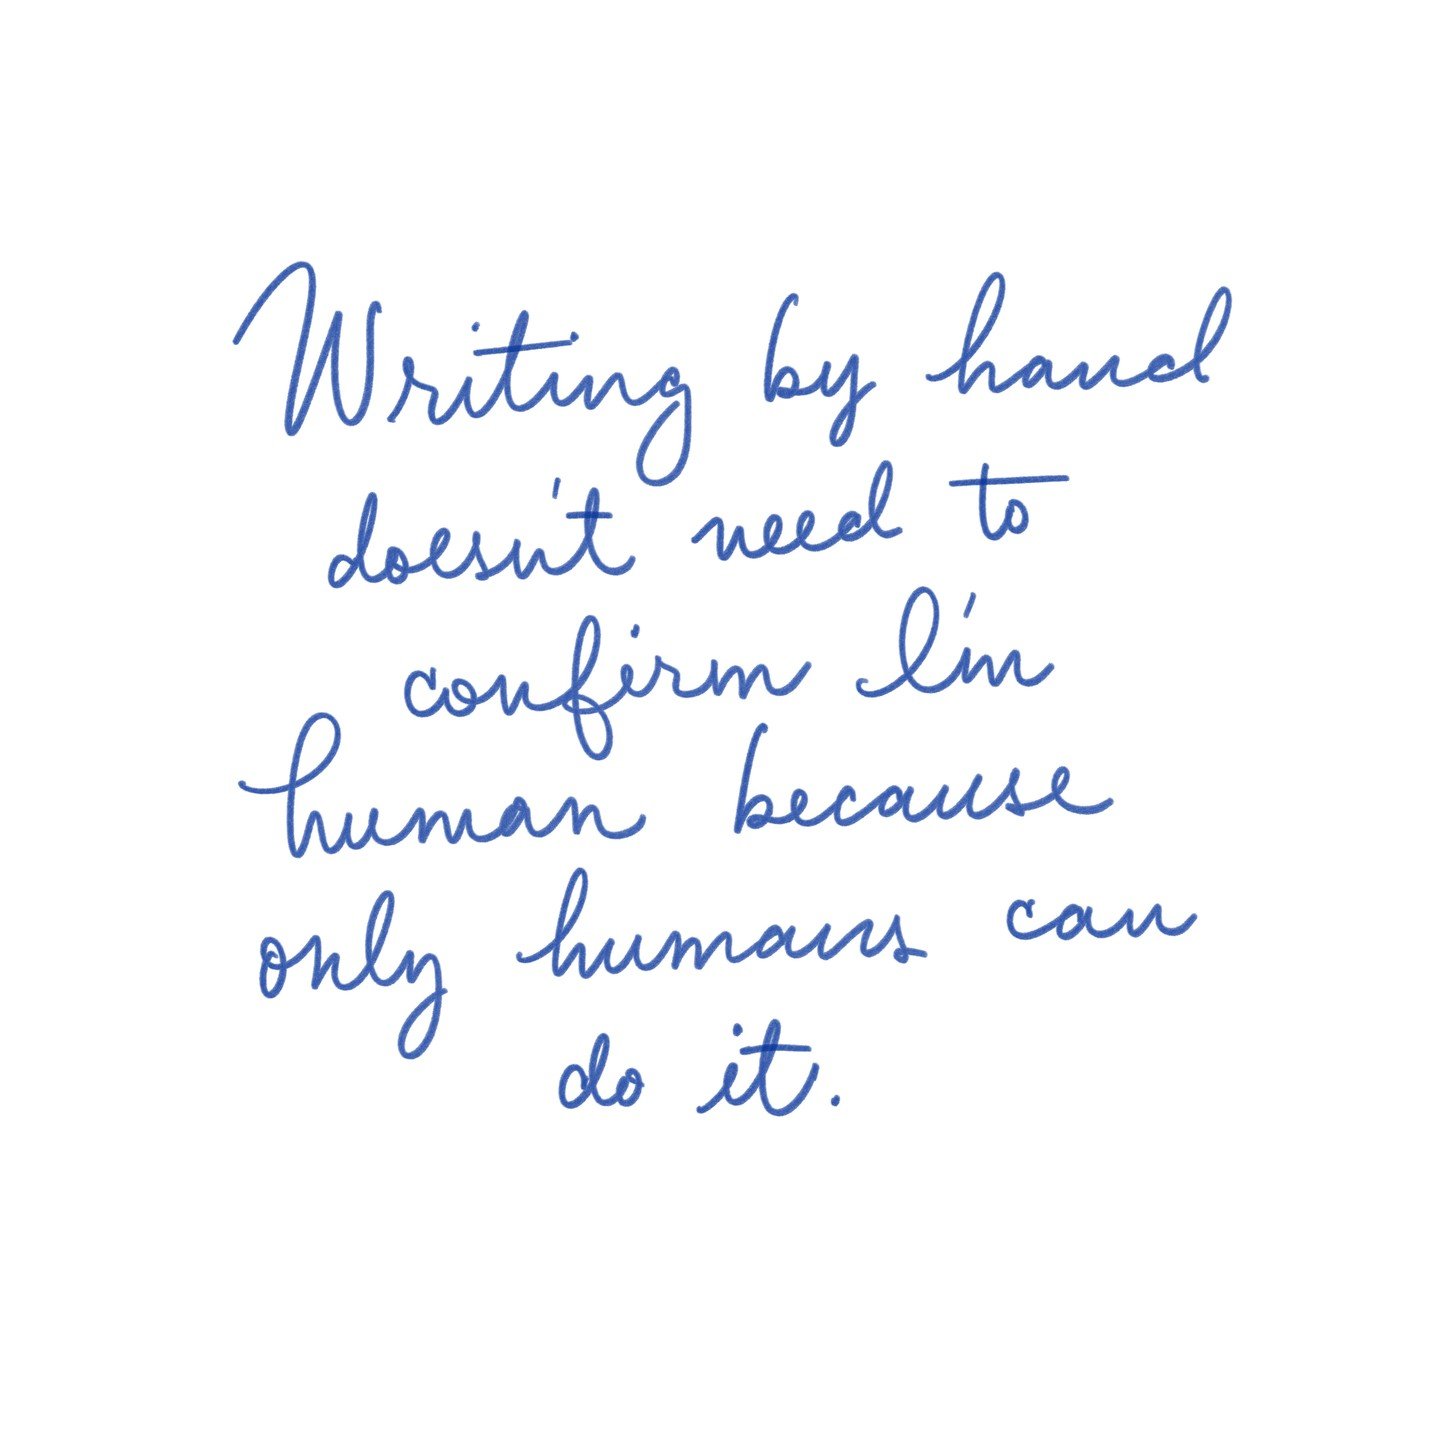 Writing by hand
doesn't need to
confirm I'm
human because
only humans can
do it.